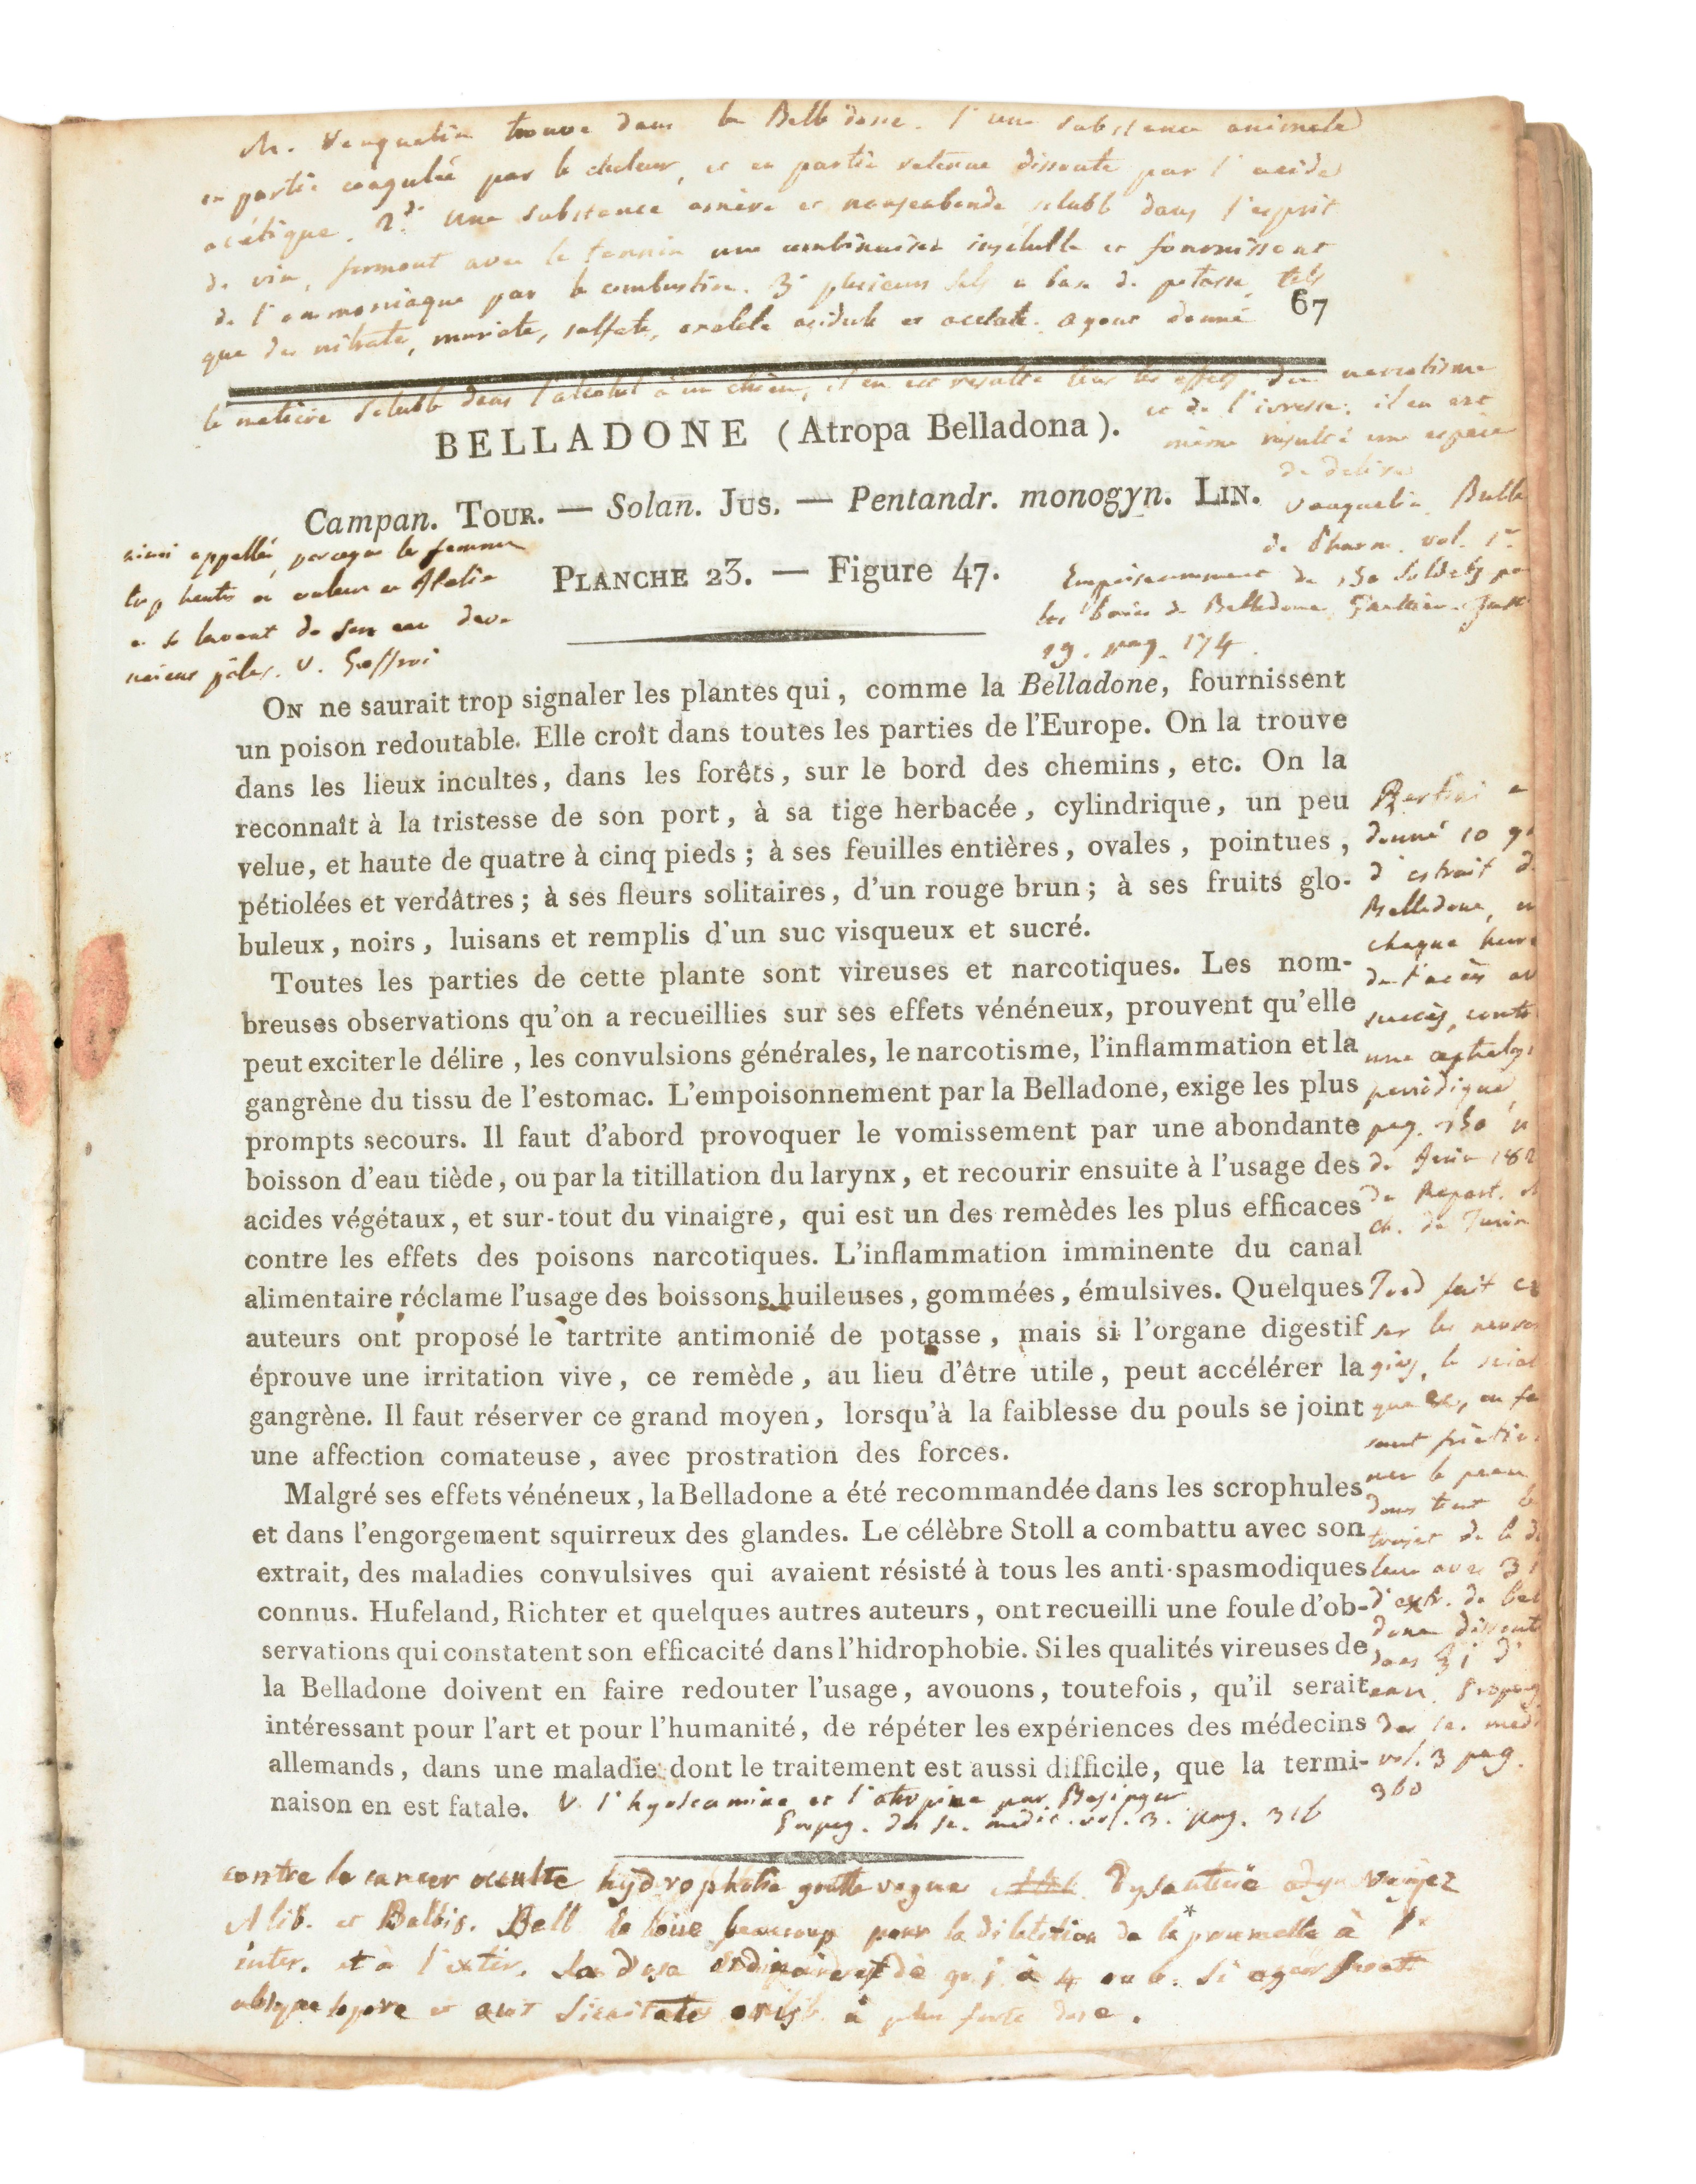 M. Vauquelin trouve dans la Belladone. 1° une substance animale
en partie coagulée par la chaleur, et en partie retenue dissoute par l'acide
acétique. 2d. une substance amère et nauseabonde soluble dans l'esprit
de vin, formant avec le tannin une combinaison insoluble et fournissant
de l'ammoniaque par la combustion. 3° plusieurs sels a base de potasse, tels
que du nitrate, muriate, sulfate, oxalate acidule et acetate. ayant donné
67
la matière soluble dans l'alcohol à un chien, il en est resulté tous les effets du narcotisme
et de l'ivresse; il en est
même resulté une espèce
de delire
Vauquelin Bull
de Pharm. vol. 1er
BELLADONE (Atropa Belladona).
Campan. TOUR. — Solan. JUS. — Pentandr. monogyn. LIN.
PLANCHE 23. — Figure 47.
ainsi appellée parceque les femmes
trop hautes en couleur en Italie
se lavent de son eau
pâles. V. Geoffroi
Empoisonnement de 150 soldats par
les baies de Belladone, Gaultier
19. pag. 174.
ON ne saurait trop signaler les plantes qui, comme la Belladone, fournissent
un poison redoutable. Elle croît dans toutes les parties de l'Europe. On la trouve
dans les lieux incultes, dans les forêts, sur le bord des chemins, etc. On la
reconnaît à la tristesse de son port, à sa tige herbacée, cylindrique, un peu
velue, et haute de quatre à cinq pieds; à ses feuilles entières, ovales, pointues,
pétiolées et verdâtres; à ses fleurs solitaires, d'un rouge brun; à ses fruits glo-
buleux, noirs, luisans et remplis d'un suc visqueux et sucré.
Toutes les parties de cette plante sont vireuses et narcotiques. Les nom-
breuses observations qu'on a recueillies sur ses effets vénéneux, prouvent qu'elle
peut exciter le délire, les convulsions générales, le narcotisme, l'inflammation et la
gangrène du tissu de l'estomac. L'empoisonnement par la Belladone, exige les plus
prompts secours. Il faut d'abord provoquer le vomissement par une abondante
boisson d'eau tiède, ou par la titillation du larynx, et recourir ensuite à l'usage des
acides végétaux, et sur-tout du vinaigre, qui est un des remèdes les plus efficaces
contre les effets des poisons narcotiques. L'inflammation imminente du canal
alimentaire réclame l'usage des boissons huileuses, gommées, émulsives. Quelques
auteurs ont proposé le tartrite antimonié de potasse, mais si l'organe digestif
éprouve une irritation vive, ce remède, au lieu d'être utile, peut accélérer la
gangrène. Il faut réserver ce grand moyen, lorsqu'à la faiblesse du pouls se joint
une affection comateuse, avec prostration des forces.
Malgré ses effets vénéneux, la Belladone a été recommandée dans les scrophules
et dans l'engorgement squirreux des glandes. Le célèbre Stoll a combattu avec son
extrait, des maladies convulsives qui avaient résisté à tous les anti-spasmodiques
connus. Hufeland, Richter et quelques autres auteurs, ont recueilli une foule d'ob-
servations qui constatent son efficacité dans l'hidrophobie. Si les qualités vireuses de
la Belladone doivent en faire redouter l'usage, avouons, toutefois, qu'il serait
intéressant pour l'art et pour l'humanité, de répéter les expériences des médecins
allemands, dans une maladie dont le traitement est aussi difficile, que la termi-
naison en est fatale.
donné 10 gr
d'extrait de
Belladone, en
chaque heure
de l'accès av
succès, contre
une cephalg
periodique,
pag. 150
de Juin 182
du Repert.
ch. de Turin
fait
sur les nevral
gies, la sciat
que &c, en fe
sant friction
ner la peau
dans tout le
trajet de la do
leur avec
d'extr. de bel
done dissout
dans
eau.
des sc. med
vol. 3 pag.
360
V. l'hyosciamine et l'atropine par
des sc. medic. vol. 3. pag. 316
contre le cancer occulte hydrophobie goutte vague Dysenterie voyez
Alib. et Balbis. Bell la loue beaucoup pour la dilatation de la * prunelle à l'
inter. et à l'exter. La dose ordinaire est de gr. j à 4 ou 6.
à plus forte dose.